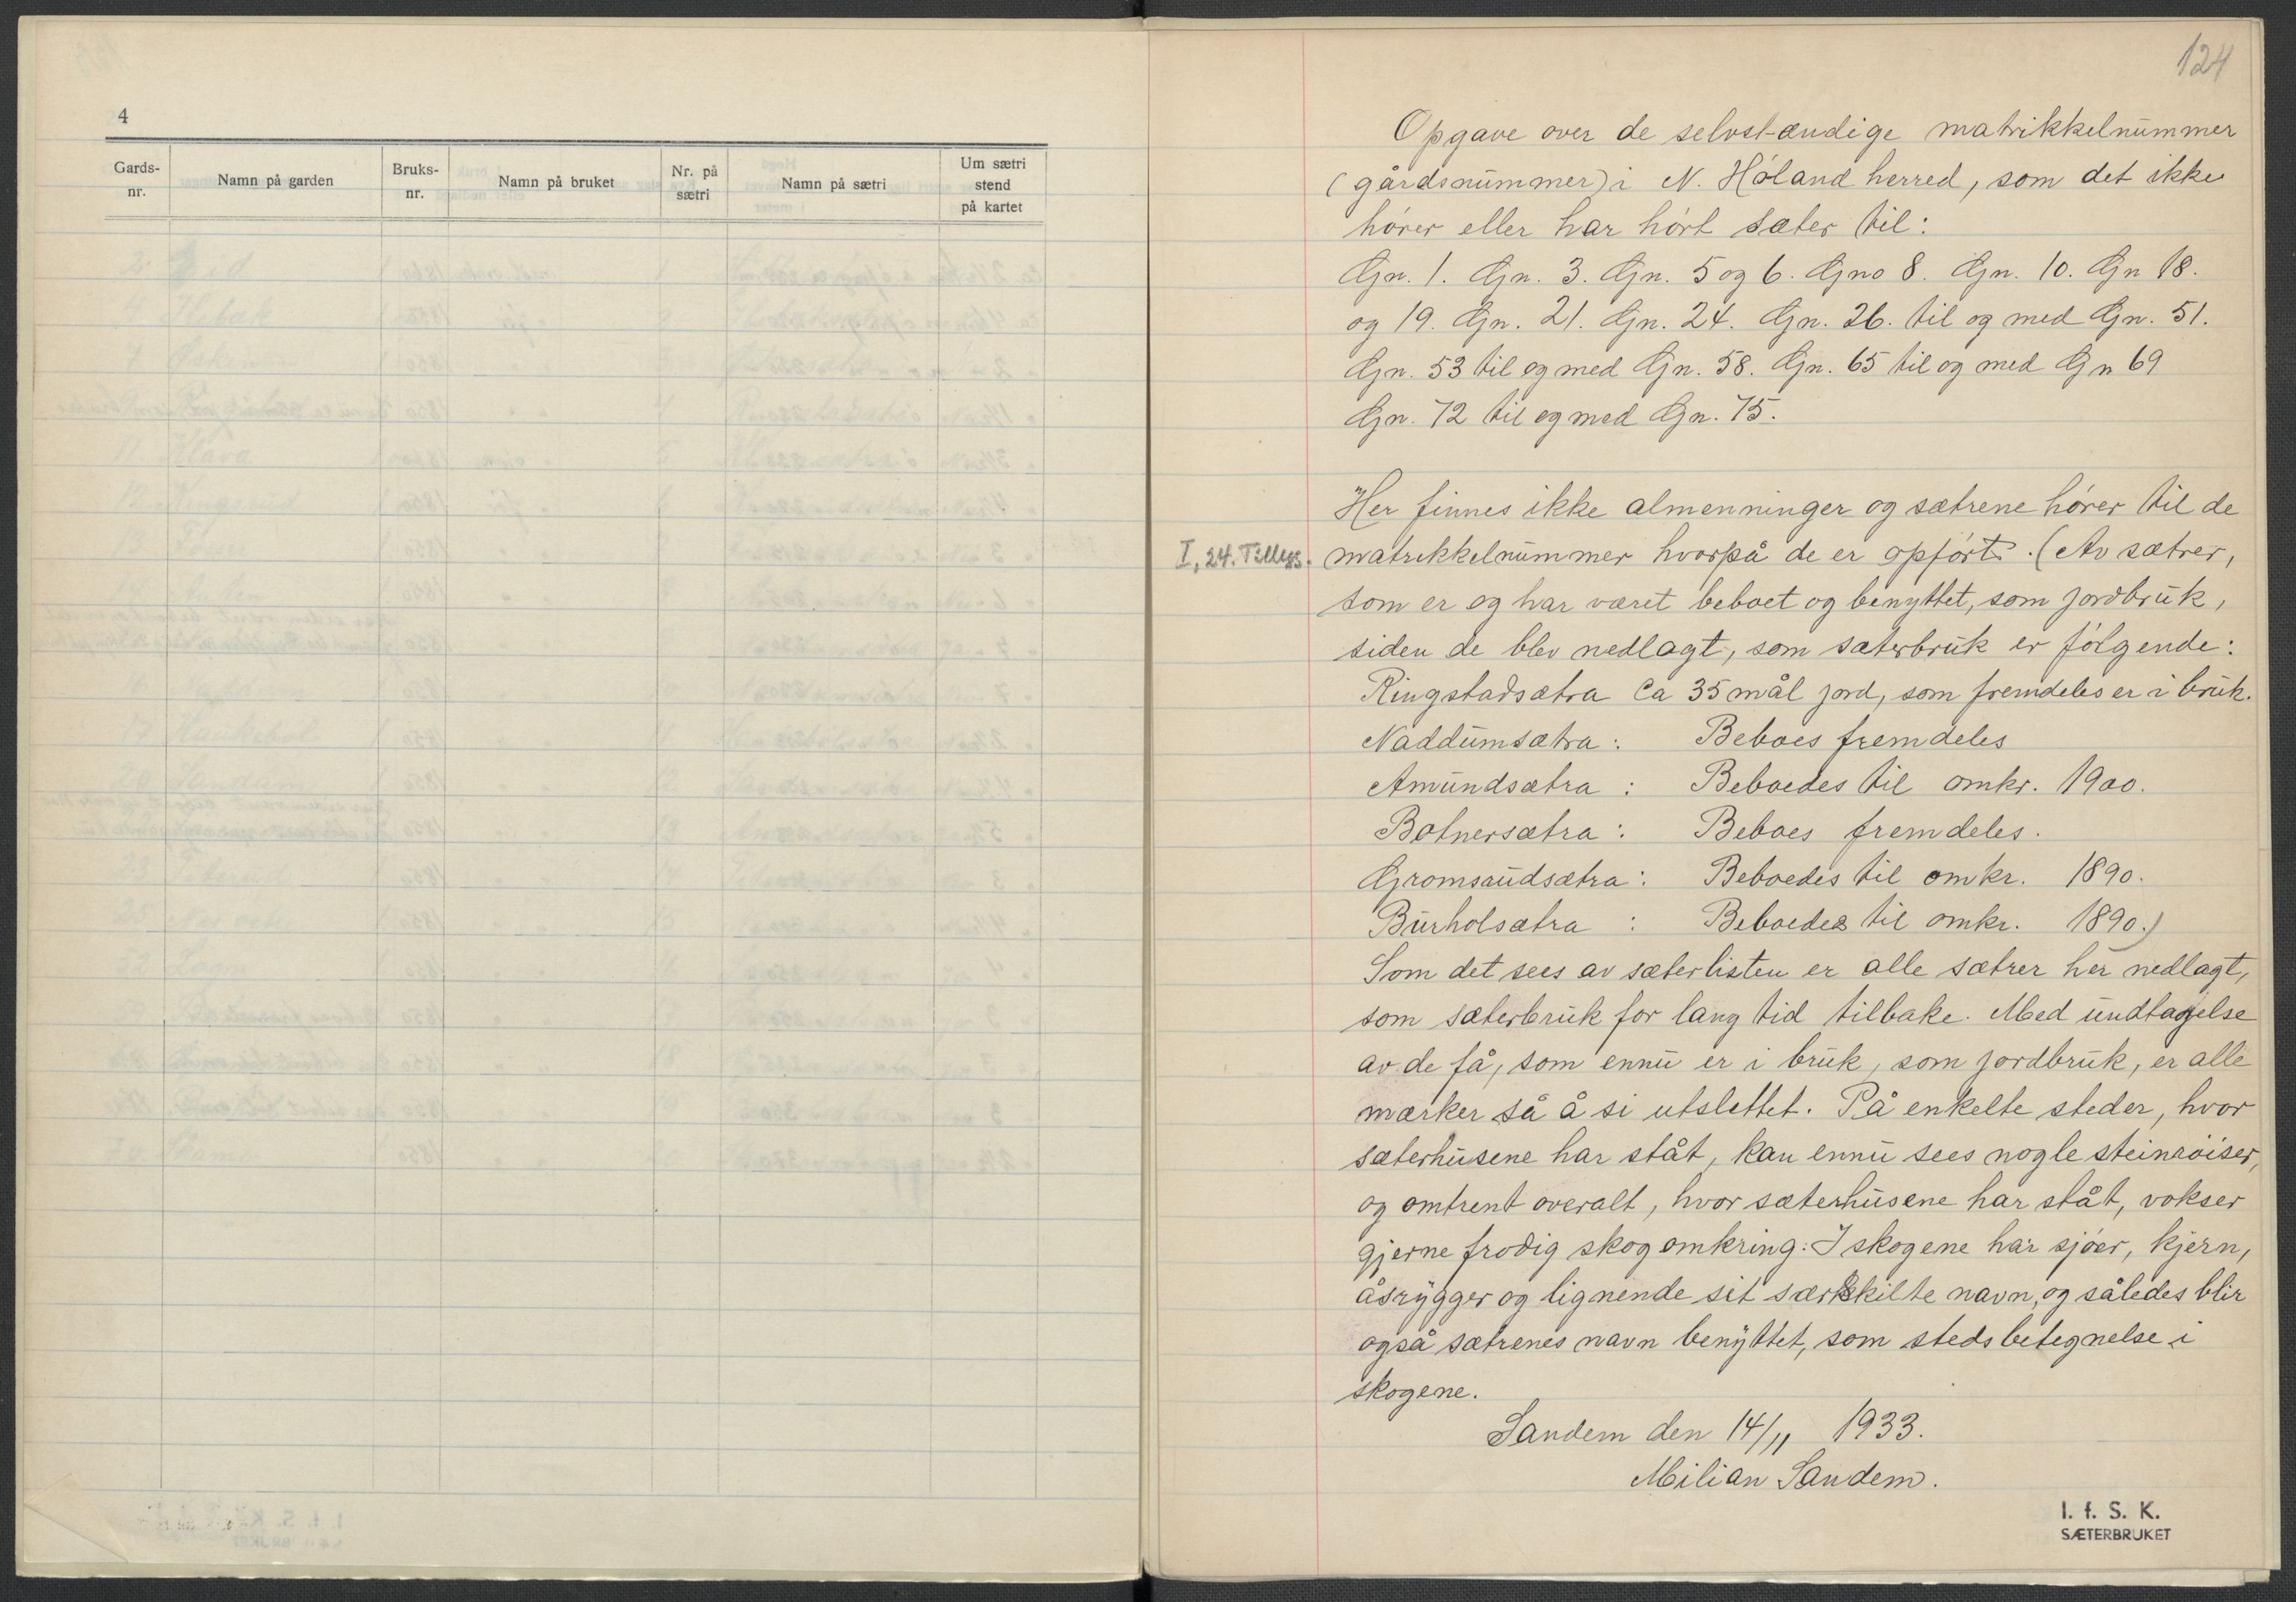 4
Gards-
nr.
Namn på garden
Bruks-
nr.
Namn på bruket
Nr. på
sætri
Namn på sætri
Um sætri
stend
på kartet
124
Opgave over de selvstændige matrikkelnummer
(gårdsnummer) i N. Høland herred, som det ikke
hører eller har hørt sæter til:
Gn. 1. Gn. 3. Gn. 5 og 6. Gno 8. Gn. 10. Gn 18.
og 19. Gn. 21. Gn. 24. Gn. 26. til og med Gn. 51.
Gn. 53 til og med Gn. 58. Gn. 65 til og med Gn 69
Gn. 72 til og med Gn. 75.
Her finnes ikke almenninger og sætrene hører til de
I, 24. Tillegg.
matrikkelnummer hvorpå de er opført. (Av sætrer,
som er og har været beboet og benyttet, som jordbruk,
siden de blev nedlagt, som sæterbruk er følgende:
Ringstadsætra ca 35 mål jord, som fremdeles er i bruk.
Naddumsætra: Beboes fremdeles
Amundsætra: Beboedes til omkr. 1900.
Botnersætra: Beboes fremdeles.
Gromsaudsætra: Beboedes til omkr. 1890.
Burholsætra: Beboedes til omkr. 1890.)
Som det sees av sæterlisten er alle sætrer her nedlagt,
som sæterbruk for lang tid tilbake. Med undtagelse
av de få, som ennu er i bruk, som jordbruk, er alle
mærker så å si utslettet. På enkelte steder, hvor
sæterhusene har ståt, kan ennu sees nogle steinrøiser,
og omtrent overalt, hvor sæterhusene har ståt, vokser
gjerne frodig skog omkring. I skogene har sjøer, kjern,
åsrygger og lignende sit særskilte navn, og således blir
også sætrenes navn benyttet, som stedsbetegnelse i
skogene.
Sandem den 14/11 1933.
Milian Sandem.
I. f. S. K.
SÆTERBRUKET